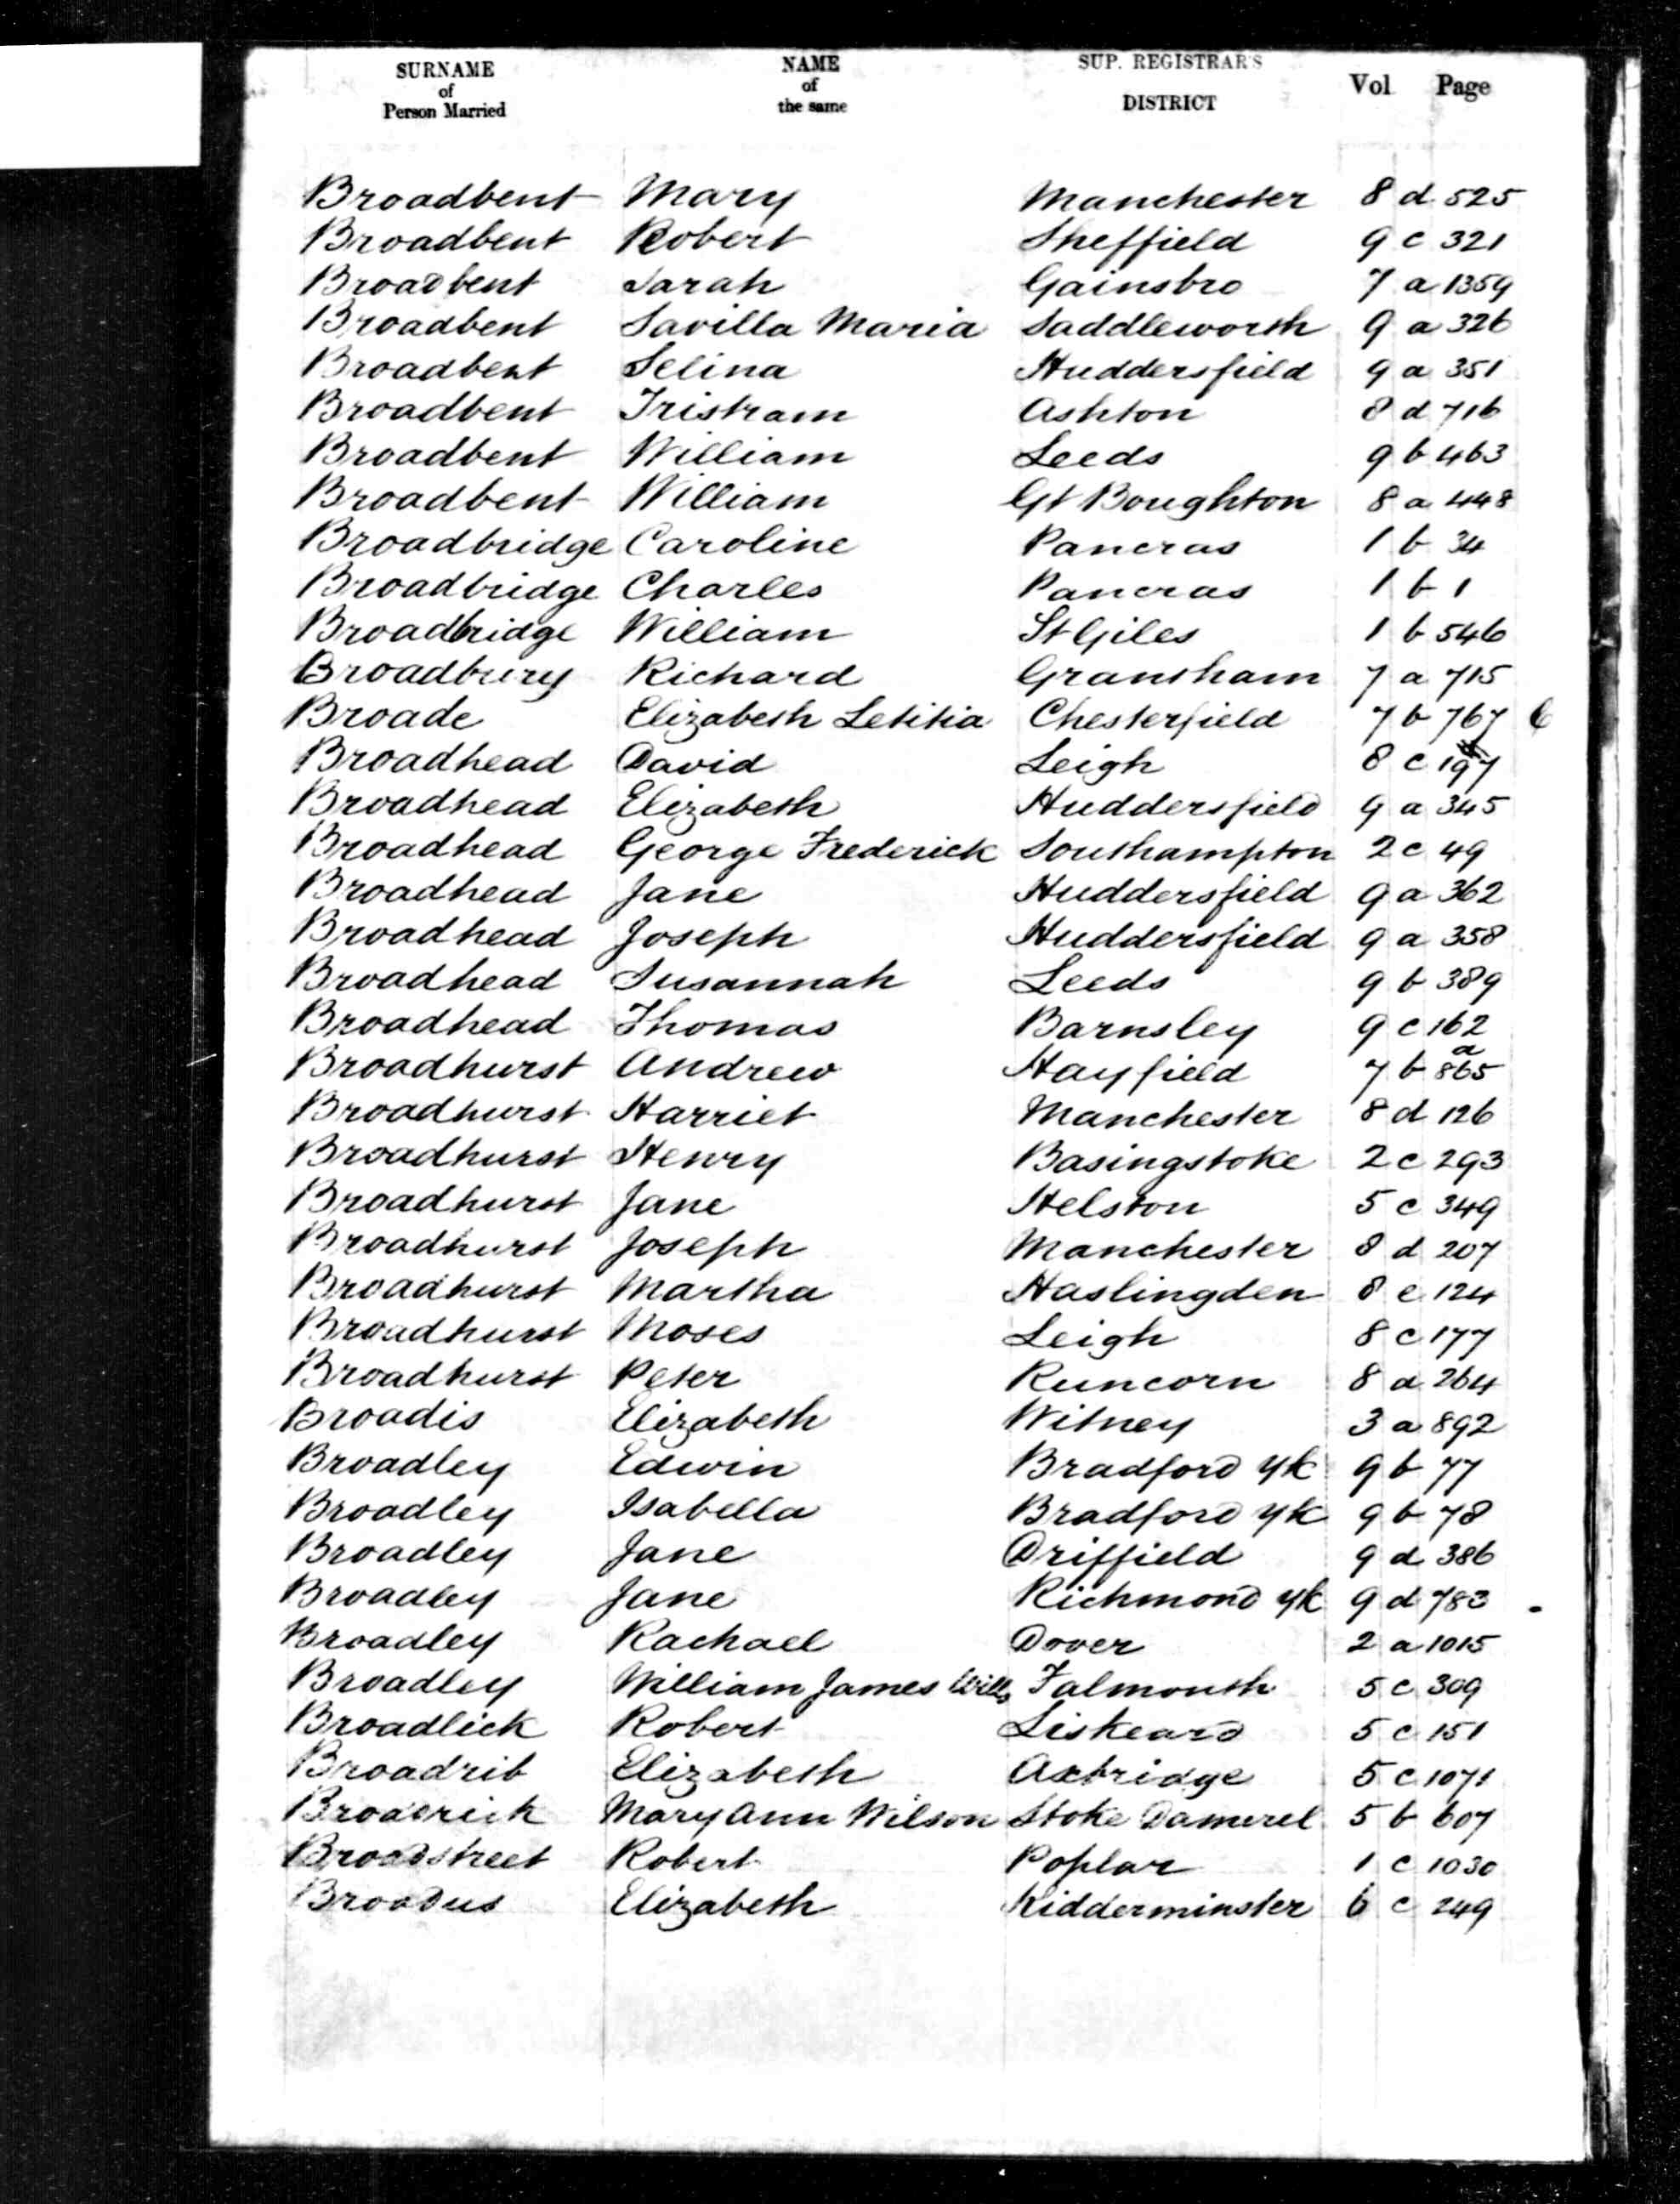 SURNAME of Person Married NAME of the same SUP. REGISTRAR'S DISTRICT Vol Page
Broadbent Mary Manchester 8 d 525
Broadbent Robert Sheffield 9 c 321
Broadbent Sarah Gainsbro 7 a 1359
Broadbent Savilla Maria Saddleworth 9 a 326
Broadbent Selina Huddersfield 9 a 351
Broadbent Tristram Ashton 8 d 716
Broadbent William Leeds 9 b 463
Broadbent William Gt Boughton 8 a 448
Broadbridge Caroline Pancras 1 b 34
Broadbridge Charles Pancras 1 b 1
Broadbridge William St Giles 1 b 546
Broadbury Richard Grantham 7 a 715
Broade Elizabeth Letitia Chesterfield 7 b 767
Broadhead David Leigh 8 c 197
Broadhead Elizabeth Huddersfield 9 a 345
Broadhead George Frederick Southampton 2 c 49
Broadhead Jane Huddersfield 9 a 362
Broadhead Joseph Huddersfield 9 a 358
Broadhead Susannah Leeds 9 b 389
Broadhead Thomas Barnsley 9 c 162
Broadhurst Andrew Hayfield 7 b 865 a
Broadhurst Harriet Manchester 8 d 126
Broadhurst Henry Basingstoke 2 c 293
Broadhurst Jane Helston 5 c 349
Broadhurst Joseph Manchester 8 d 207
Broadhurst Martha Haslingden 8 e 124
Broadhurst Moses Leigh 8 c 177
Broadhurst Peter Runcorn 8 a 264
Broadis Elizabeth Witney 3 a 892
Broadley Edwin Bradford Yk 9 b 77
Broadley Isabella Bradford Yk 9 b 78
Broadley Jane Driffield 9 d 386
Broadley Jane Richmond Yk 9 d 783
Broadley Rachael Dover 2 a 1015
Broadley William James Wills Falmouth 5 c 309
Broadlick Robert Liskeard 5 c 151
Broadrib Elizabeth Axbridge 5 c 1071
Broadrick Mary Ann Wilson Stoke Damerel 5 b 607
Broadstreet Robert Poplar 1 c 1030
Broadus Elizabeth Kidderminster 6 c 249